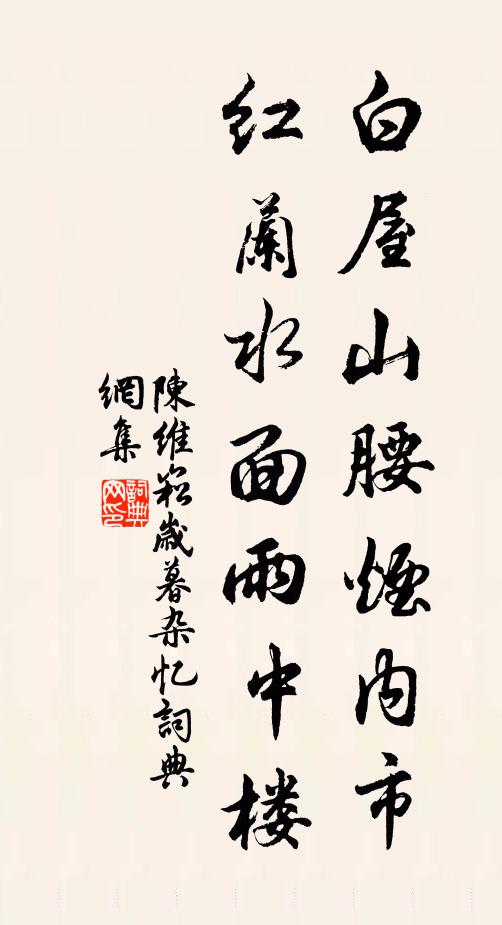 白屋山腰煙内市
紅蘭水面雨中楼
陳維崧歲暮杂忆詞典
網集
詞典
网印